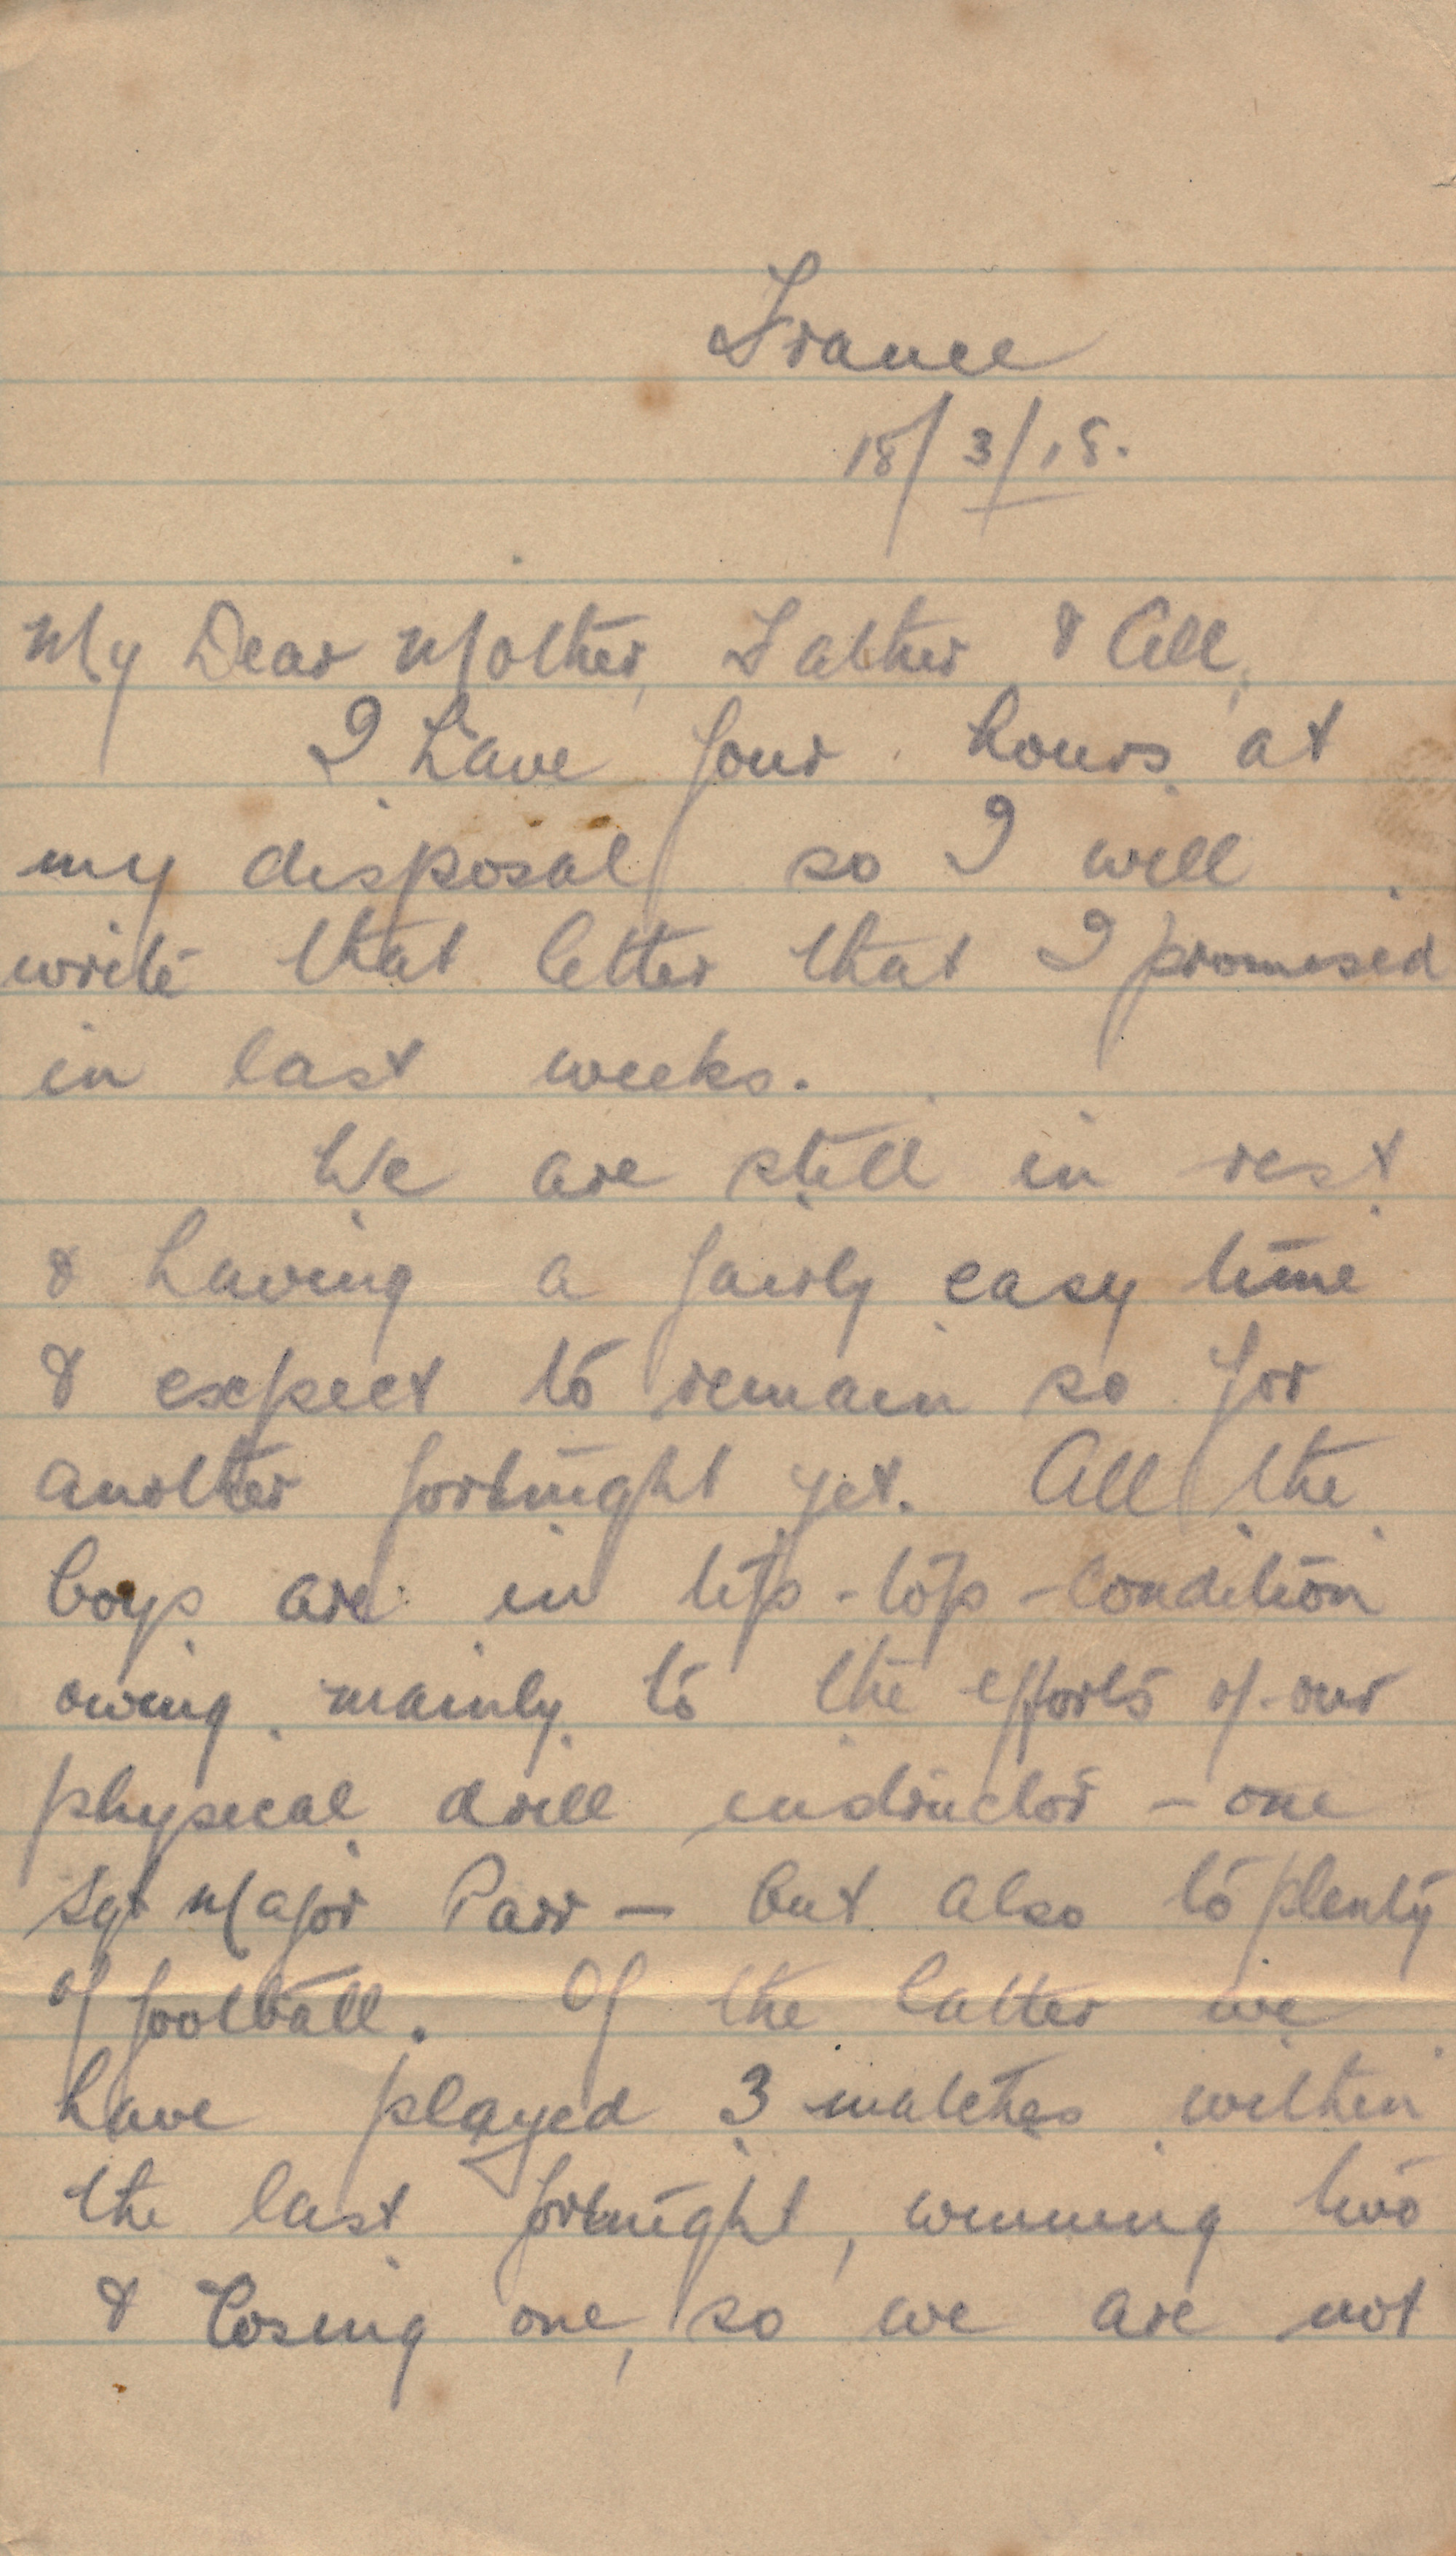 France
18/3/18.
My Dear Mother, Father & All,
I have four hours at
my disposal so I will
write that letter that I promised
in last weeks.
We are still in rest
& having a fairly easy time
& expect to remain so for
another fortnight yet. All the
boys are in tip-top-condition
owing mainly to the efforts of our
physical drill instructor - one
Sgt Major Parr - but also to plenty
of football. Of the latter we
have played 3 matches within
the last fortnight, winning two
& losing one, so we are not